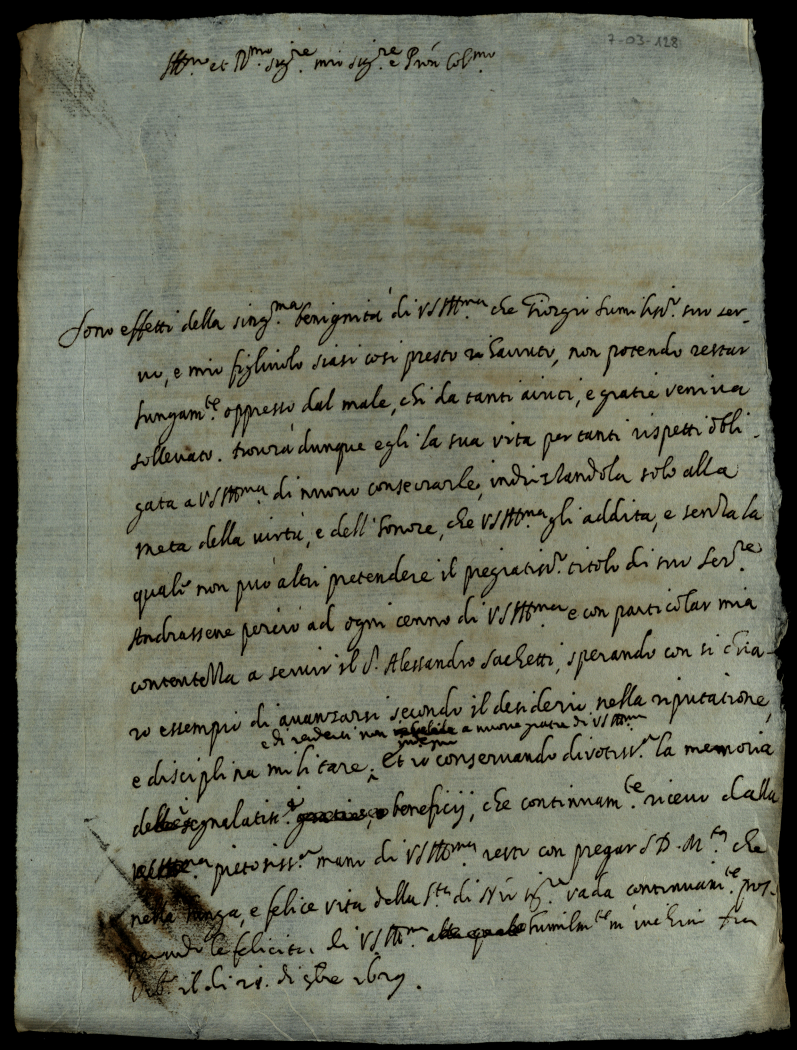 7-03-128
Ill.mo et R.mo Sig.re mio Sig.re e Pron Col.mo
Sono effetti della sing.ma benignità di VS Ill.ma che Giorgio humiliss.o suo ser-
vo, e mio figliuolo siasi così presto rihavuto, non potendo restar
lungam.te oppresso dal male, chi da tanti aiuti, e gratie veniva
sollevato. Trovarà dunque egli la sua vita per tanti rispetti obli-
gata a VS Ill.ma di nuovo consecrarle, indrizzandola solo alla
meta della virtù, e dell'honore, che VS Ill.ma gli addita, e senza la
quale non può altri pretendere il pregiatiss.o titolo di suo Ser.re
Andrassene perciò ad ogni cenno di VS Ill.ma e con particolar mia
contentezza a servir il S.r Alessandro Sachetti, sperando con sì chia-
ro essempio di avanzarsi secondo il desiderio, nella riputatione,
e di rendersi non indegno a nuove gratie di VS Ill.ma
e disciplina militare. Et io conservando divotiss.a la memoria
de segnalatiss.i beneficij, che continuam.te ricevo dalla
pietosiss.a mano di VS Ill.ma resto con pregar S D. M.tà che
nella lunga, e felice vita della S.tà di N.ro Sig.re vada continuam.te pros-
perando le felicità di VS Ill.ma alla quale humilm.te m'inchino
il dì 21. di 9bre 1629.